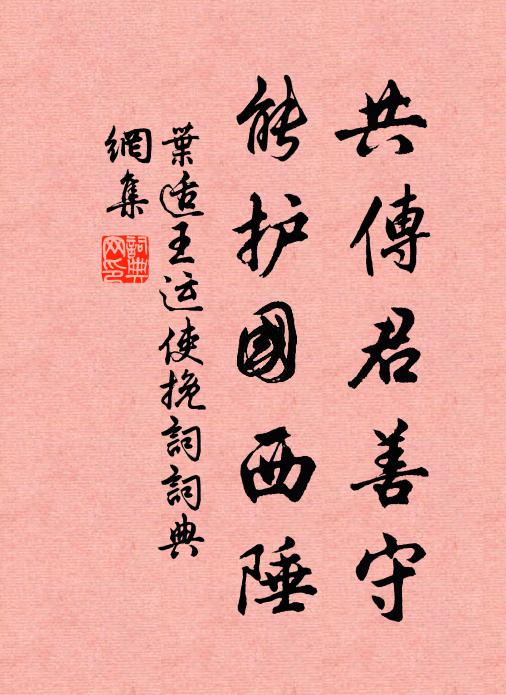 共傳君善守
能护國西陲
葉适王运使挽詞詞典
網集
詞典
网印